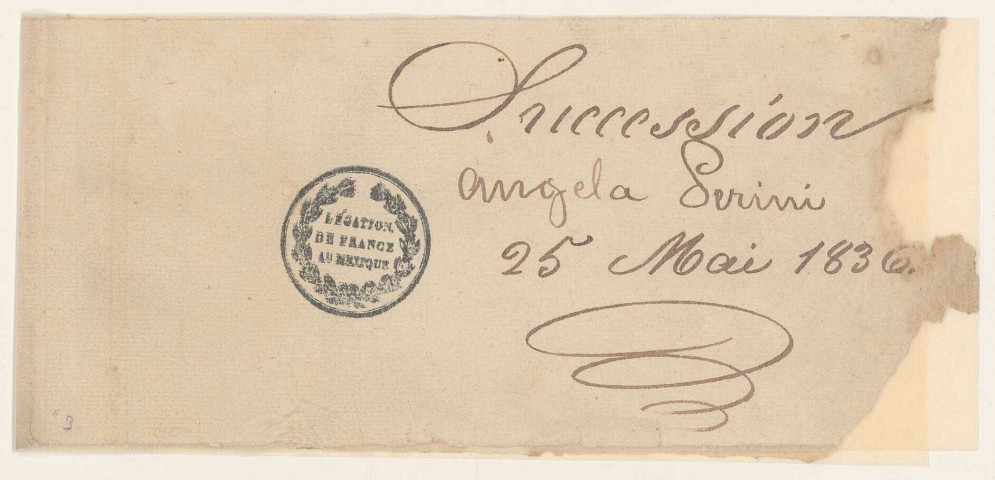 Succession
Angela Serini
25 Mai 1836.
LÉGATION
DE FRANCE
AU MEXIQUE
3